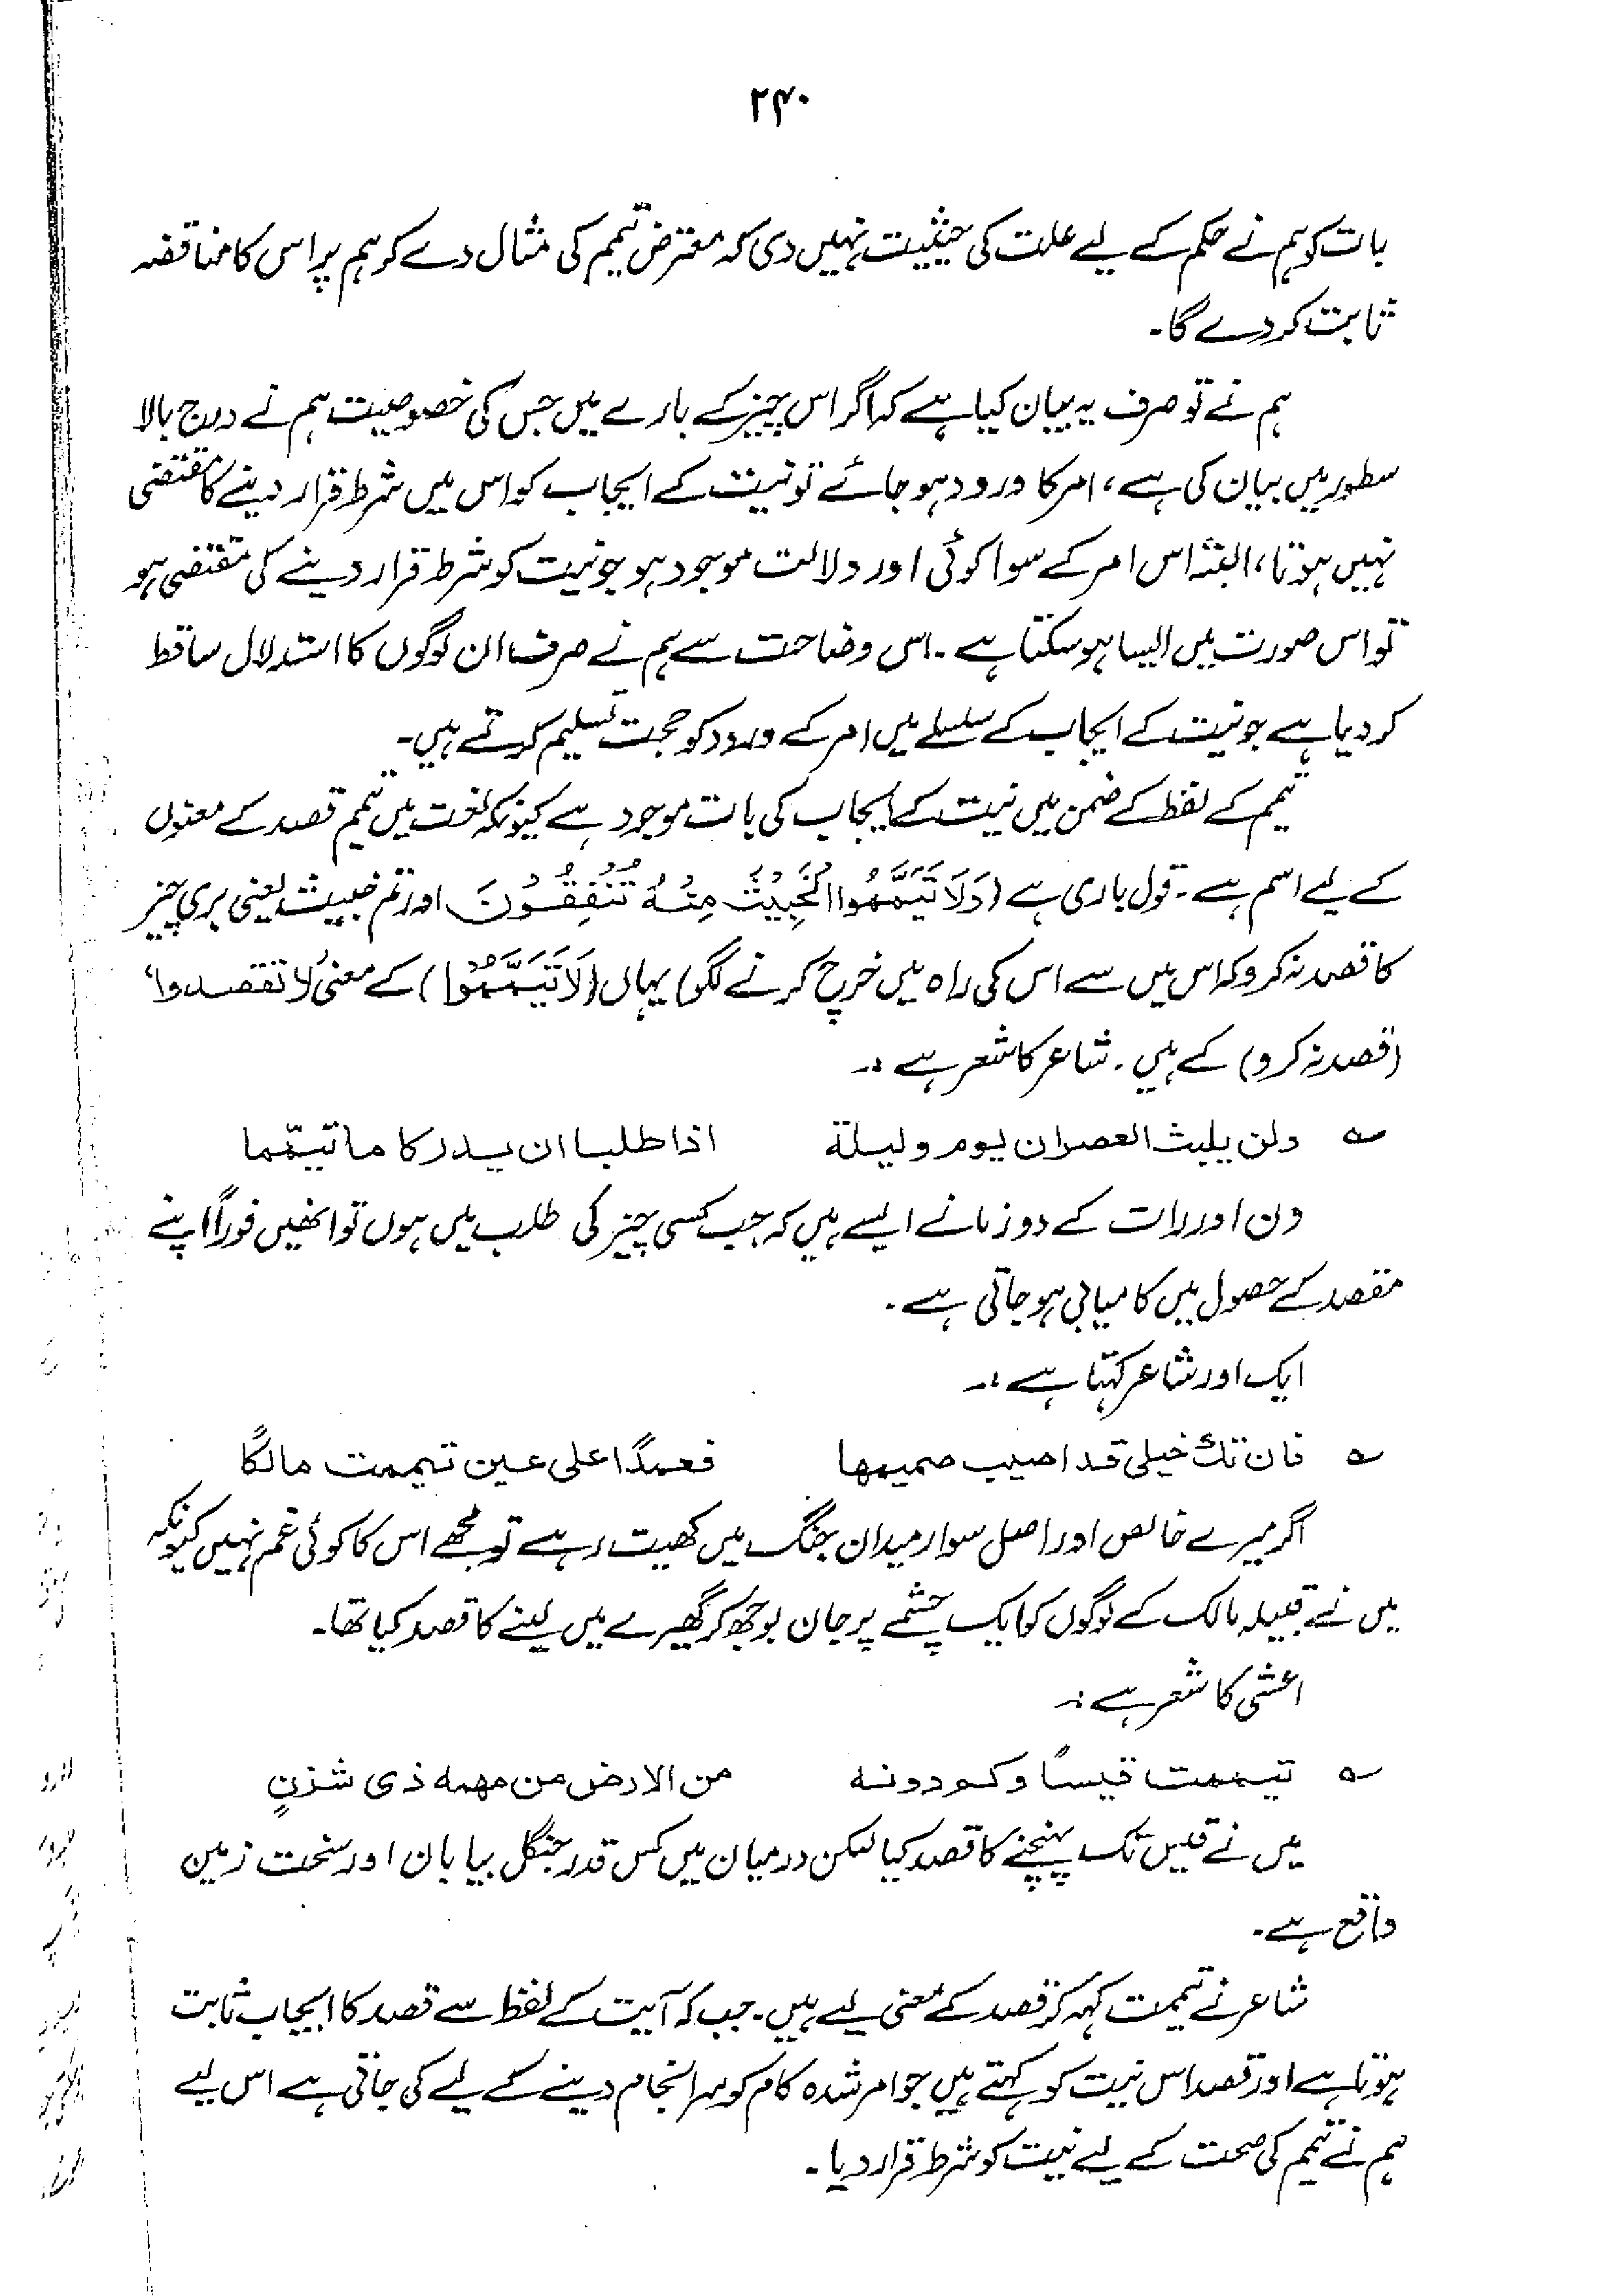 ۲۴۰
بات کو ہم نے حکم کے لیے علت کی حیثیت نہیں دی کہ معترض تیمم کی مثال دے کر ہم پر اس کا مناقضہ
ثابت کر دے گا۔
ہم نے تو صرف یہ بیان کیا ہے کہ اگر اس چیز کے بارے میں جس کی خصوصیت ہم نے درج بالا
سطور میں بیان کی ہے، امر کا ورود ہو جائے تو نیت کے ایجاب کو اس میں شرط قرار دینے کا مقتضی
نہیں ہوتا، البتہ اس امر کے سوا کوئی اور دلالت موجود ہو جو نیت کو شرط قرار دینے کی مقتضی ہو
تو اس صورت میں ایسا ہو سکتا ہے۔ اس وضاحت سے ہم نے صرف ان لوگوں کا استدلال ساقط
کر دیا ہے جو نیت کے ایجاب کے سلسلے میں امر کے ورود کو حجت تسلیم کرتے ہیں۔
تیمم کے لفظ کے ضمن میں نیت کے ایجاب کی بات موجود ہے کیونکہ لغت میں تیمم قصد کے معنوں
کے لیے اسم ہے۔ قول باری ہے (وَلَا تَيَمَّمُوا الْخَبِيْثَ مِنْهُ تُنْفِقُوْنَ اور تم خبیث یعنی بری چیز
کا قصد نہ کرو کہ اس میں سے اس کی راہ میں خرچ کرنے لگو) یہاں (لَا تَيَمَّمُوْا) کے معنی 'لا تقصدوا'
(قصد نہ کرو) کے ہیں۔ شاعر کا شعر ہے :۔
؎ ولن یلبث العصران یوم ولیلة اذا طلبا ان یدرکا ما تیمّما
دن اور رات کے دو زمانے ایسے ہیں کہ جب کسی چیز کی طلب میں ہوں تو انھیں فوراً اپنے
مقصد کے حصول میں کامیابی ہو جاتی ہے۔
ایک اور شاعر کہتا ہے :۔
؎ فان تک خیلی قد اصیب صمیمها فعمدًا علی عین تیممت مالکًا
اگر میرے خالص اور اصل سوار میدان جنگ میں کھیت رہے تو مجھے اس کا کوئی غم نہیں کیونکہ
میں نے قبیلہ مالک کے لوگوں کو ایک چشمے پر جان بوجھ کر گھیرے میں لینے کا قصد کیا تھا۔
اعشی کا شعر ہے :۔
؎ تیممت قیسًا وکم دونه من الارض من مهمه ذی شزنٍ
میں نے قیس تک پہنچنے کا قصد کیا لیکن درمیان میں کس قدر جنگل بیابان اور سخت زمین
واقع ہے۔
شاعر نے تیممت کہہ کر قصد کے معنی لیے ہیں۔ جب کہ آیت کے لفظ سے قصد کا ایجاب ثابت
ہوتا ہے اور قصد اس نیت کو کہتے ہیں جو امر شدہ کام کو سرانجام دینے کے لیے کی جاتی ہے اس لیے
ہم نے تیمم کی صحت کے لیے نیت کو شرط قرار دیا۔